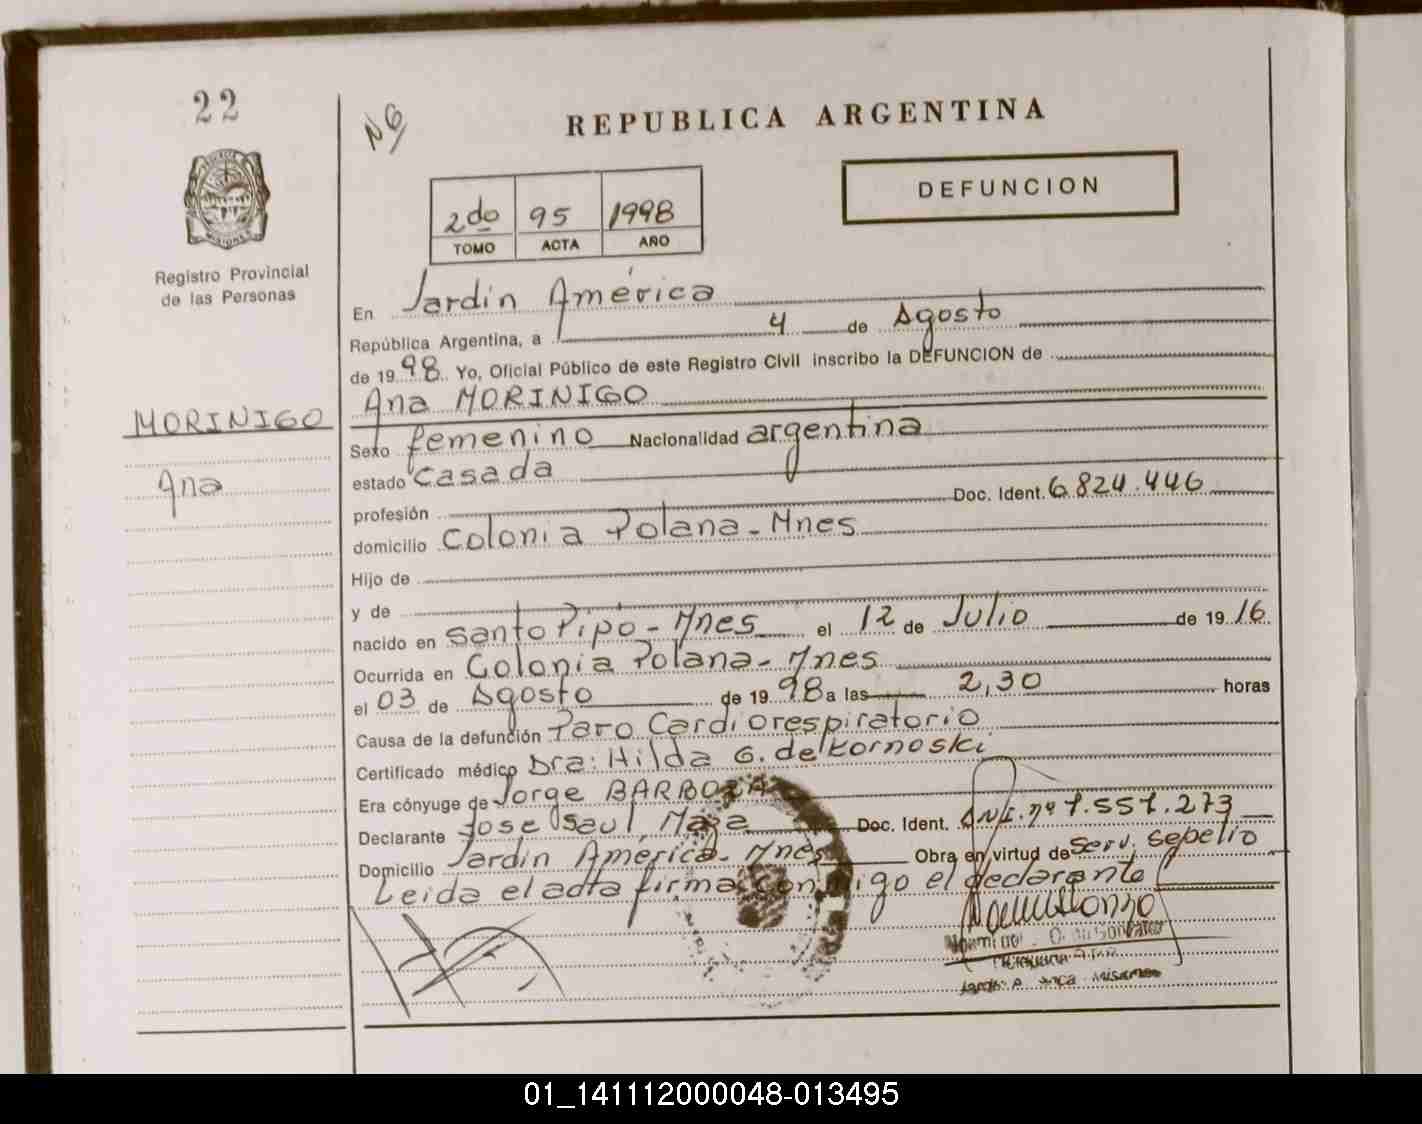 22
Nº
REPUBLICA ARGENTINA
DEFUNCION
2do 95 1998
TOMO ACTA AÑO
MISIONES
Registro Provincial
de las Personas
En Jardín América
República Argentina, a 4 de Agosto
de 1998. Yo, Oficial Público de este Registro Civil inscribo la DEFUNCION de
MORINIGO
Ana
Ana MORINIGO
Sexo femenino Nacionalidad argentina
estado Casada
profesión Doc. Ident. 6.824.446
domicilio Colonia Polana - Mnes
Hijo de
y de
nacido en Santo Pipó - Mnes el 12 de Julio de 1916
Ocurrida en Colonia Polana - Mnes
el 03 de Agosto de 1998 a las 2,30 horas
Causa de la defunción Paro Cardiorespiratorio
Certificado médico Dra: Hilda G. de Kornoski
Era cónyuge de Jorge BARBOZA
Declarante Jose Saul Maza Doc. Ident. DNI. nº 7.557.273
Domicilio Jardín América - Mnes Obra en virtud de Serv. Sepelio
Leida el acta firma conmigo el declarante
01_141112000048-013495